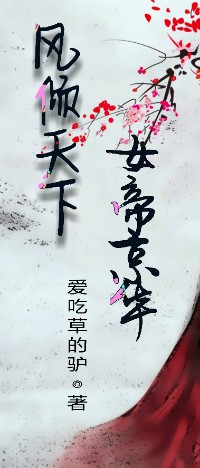 风倾天下
女帝京华
爱吃草的驴。著